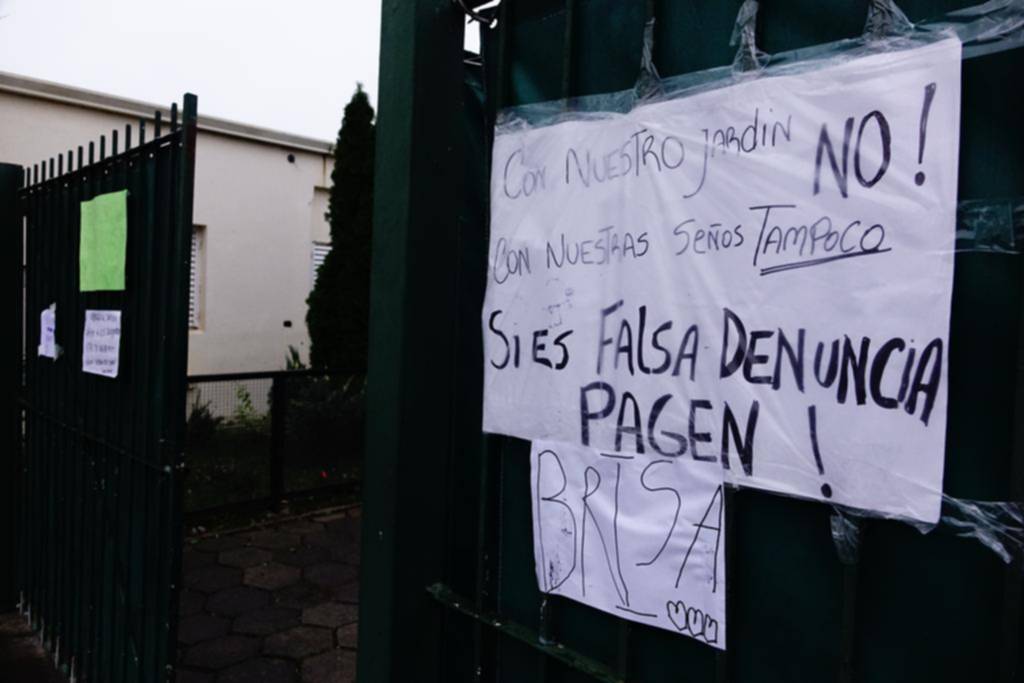 CON NUESTRO JARDIN NO!
CON NUESTRAS SEÑOS TAMPOCO
SI ES FALSA DENUNCIA
PAGEN!
BRISA